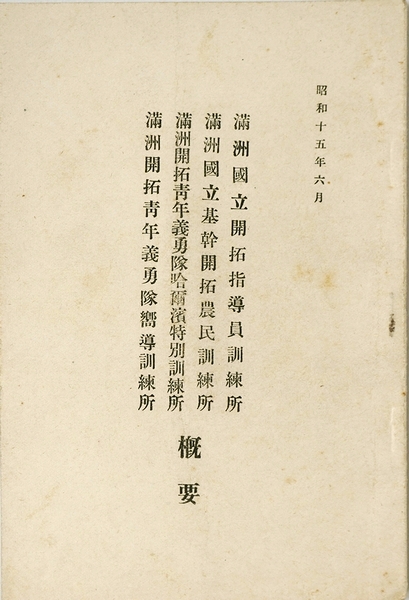 昭和十五年六月
滿洲國立開拓指導員訓練所
滿洲國立基幹開拓農民訓練所
滿洲開拓靑年義勇隊哈爾濱特別訓練所
滿洲開拓靑年義勇隊嚮導訓練所
槪要